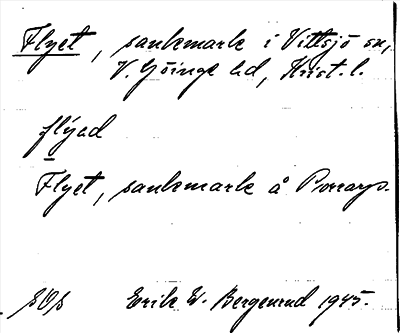 Flyet, sankmark i Vittsjö sn,
V. Göinge hd, Krist. l.
flýad
Flyet, sankmark å Porrarp.
SOS Erik W. Bergenrud 1945.